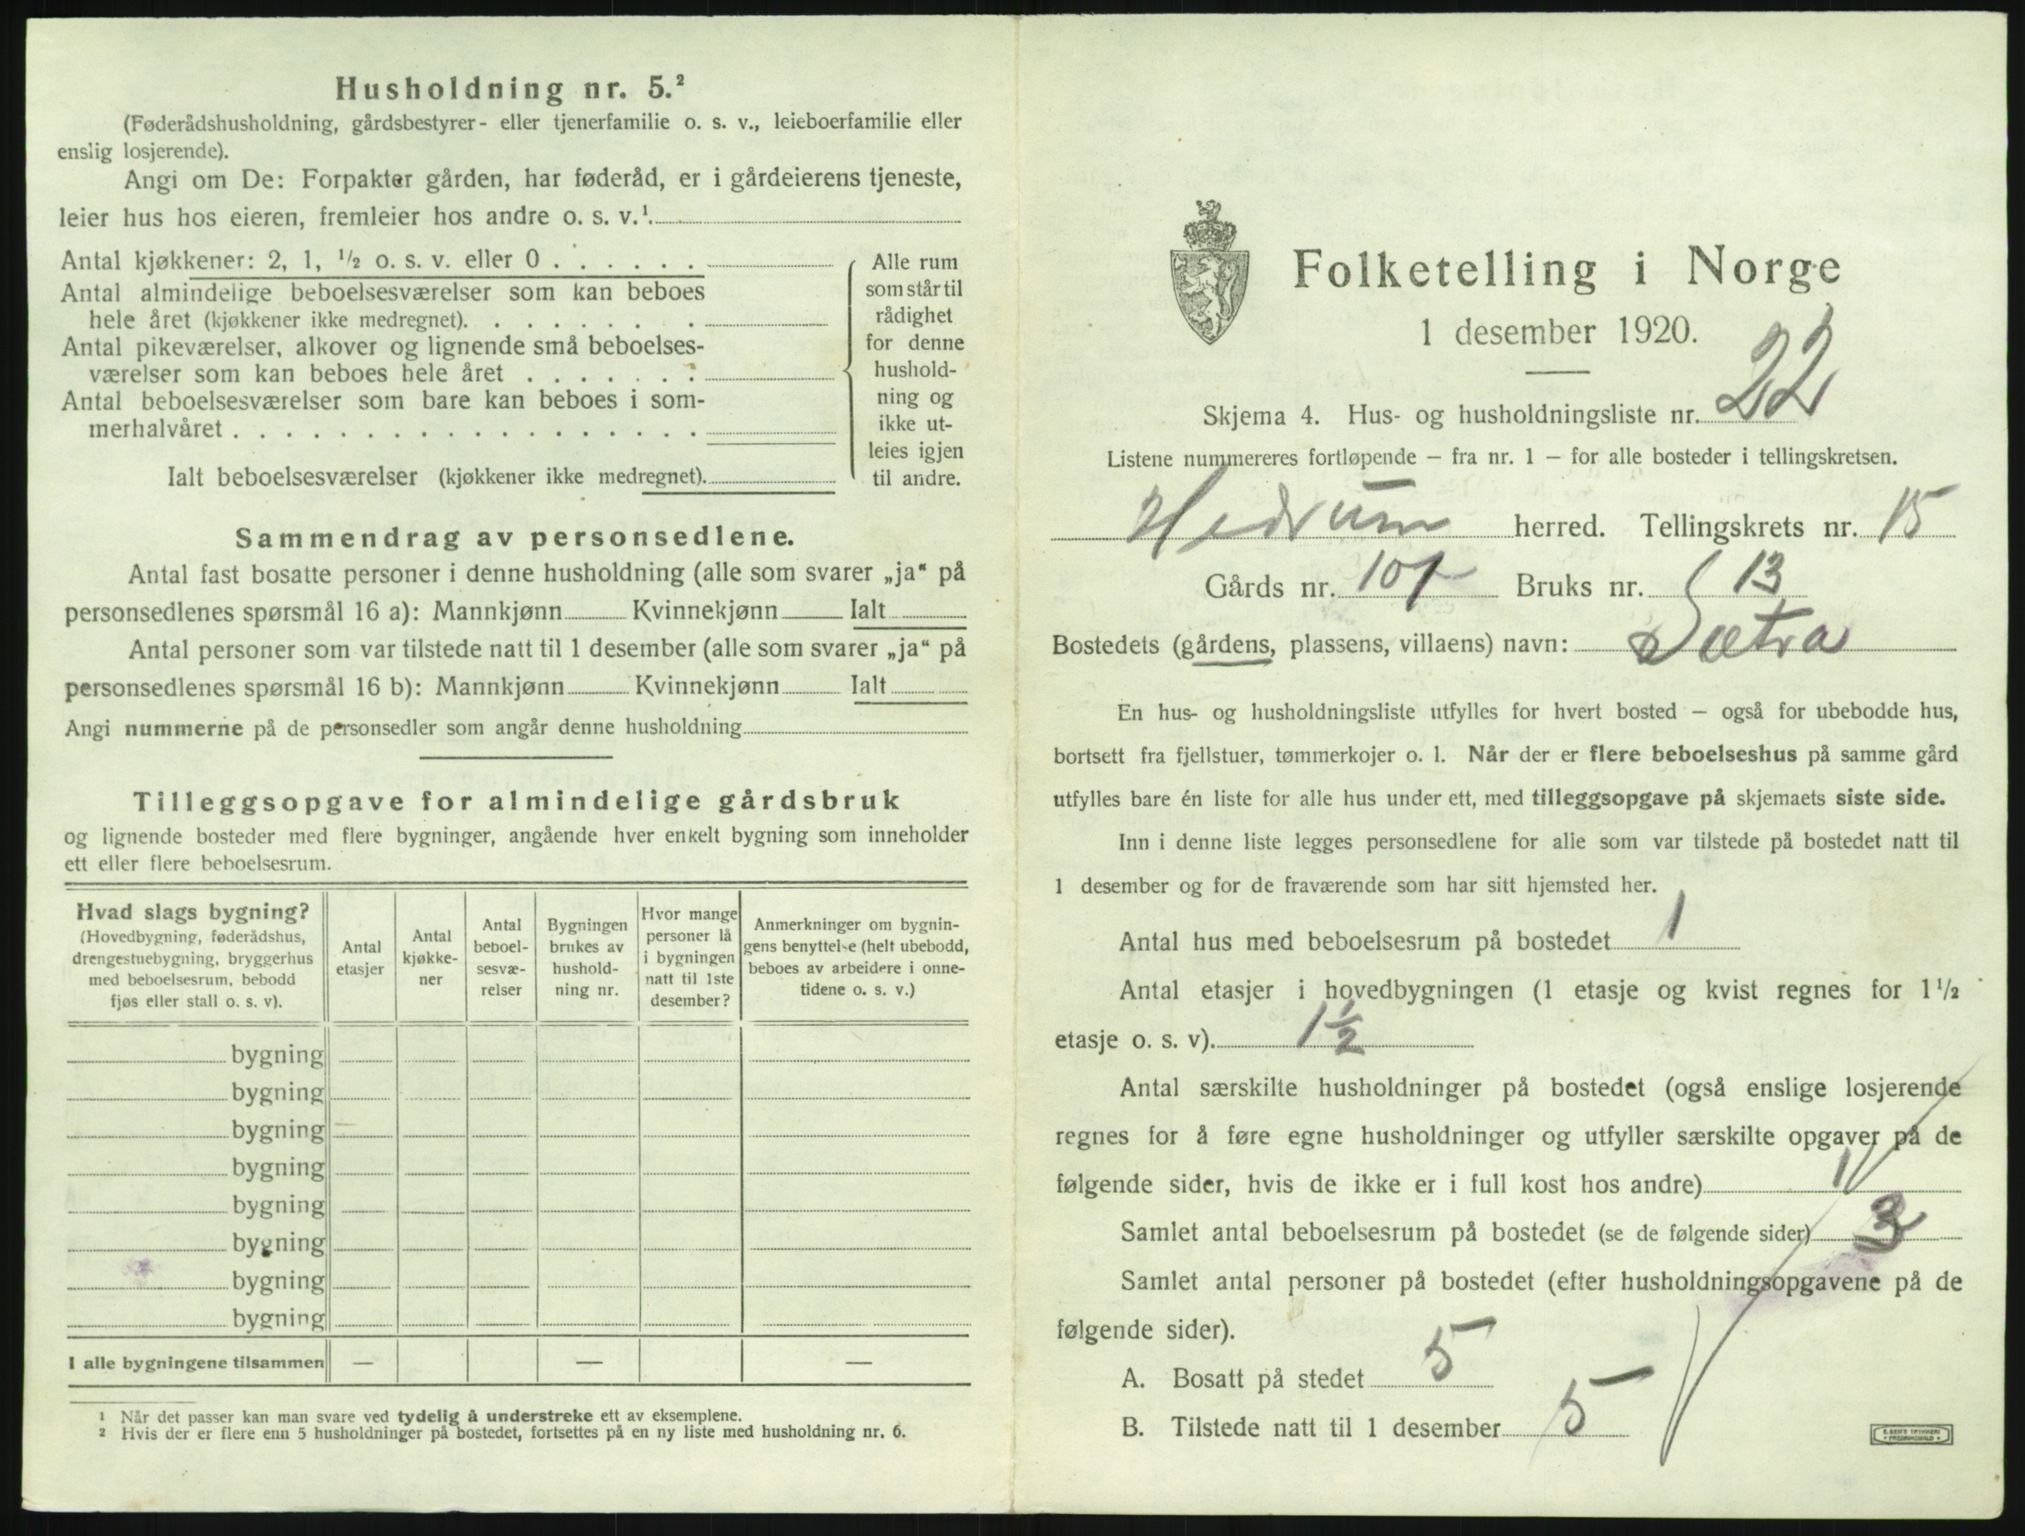 Husholdning nr. 5.²
(Føderådshusholdning, gårdsbestyrer- eller tjenerfamilie o. s. v., leieboerfamilie eller
enslig losjerende).
Angi om De: Forpakter gården, har føderåd, er i gårdeierens tjeneste,
leier hus hos eieren, fremleier hos andre o. s. v.¹
Antal kjøkkener: 2, 1, ½ o. s. v. eller 0
Antal almindelige beboelsesværelser som kan beboes
hele året (kjøkkener ikke medregnet).
Antal pikeværelser, alkover og lignende små beboelses-
værelser som kan beboes hele året
Antal beboelsesværelser som bare kan beboes i som-
merhalvåret
Ialt beboelsesværelser (kjøkkener ikke medregnet).
Alle rum
som står til
rådighet
for denne
hushold-
ning og
ikke ut-
leies igjen
til andre.
Sammendrag av personsedlene.
Antal fast bosatte personer i denne husholdning (alle som svarer „ja“ på
personsedlenes spørsmål 16 a): Mannkjønn Kvinnekjønn Ialt
Antal personer som var tilstede natt til 1 desember (alle som svarer „ja“ på
personsedlenes spørsmål 16 b): Mannkjønn Kvinnekjønn Ialt
Angi nummerne på de personsedler som angår denne husholdning
Tilleggsopgave for almindelige gårdsbruk
og lignende bosteder med flere bygninger, angående hver enkelt bygning som inneholder
ett eller flere beboelsesrum.
Hvad slags bygning?
(Hovedbygning, føderådshus,
drengestuebygning, bryggerhus
med beboelsesrum, bebodd
fjøs eller stall o. s. v).
Antal
etasjer
Antal
kjøkke-
ner
Antal
beboel-
sesvæ-
relser
Bygningen
brukes av
hushold-
ning nr.
Hvor mange
personer lå
i bygningen
natt til 1ste
desember?
Anmerkninger om bygnin-
gens benyttelse (helt ubebodd,
beboes av arbeidere i onne-
tidene o. s. v.)
bygning
bygning
bygning
bygning
bygning
bygning
bygning
bygning
I alle bygningene tilsammen — — —
¹ Når det passer kan man svare ved tydelig å understreke ett av eksemplene.
² Hvis der er flere enn 5 husholdninger på bostedet, fortsettes på en ny liste med husholdning nr. 6.
Folketelling i Norge
1 desember 1920.
Skjema 4. Hus- og husholdningsliste nr. 22
Listene nummereres fortløpende – fra nr. 1 – for alle bosteder i tellingskretsen.
Hedrum herred. Tellingskrets nr. 15
Gårds nr. 107 Bruks nr. 13
Bostedets (gårdens, plassens, villaens) navn: Sætra
En hus- og husholdningsliste utfylles for hvert bosted – også for ubebodde hus,
bortsett fra fjellstuer, tømmerkojer o. l. Når der er flere beboelseshus på samme gård
utfylles bare én liste for alle hus under ett, med tilleggsopgave på skjemaets siste side.
Inn i denne liste legges personsedlene for alle som var tilstede på bostedet natt til
1 desember og for de fraværende som har sitt hjemsted her.
Antal hus med beboelsesrum på bostedet 1
Antal etasjer i hovedbygningen (1 etasje og kvist regnes for 1½
etasje o. s. v). 1½
Antal særskilte husholdninger på bostedet (også enslige losjerende
regnes for å føre egne husholdninger og utfyller særskilte opgaver på de
følgende sider, hvis de ikke er i full kost hos andre) 1
Samlet antal beboelsesrum på bostedet (se de følgende sider) 3
Samlet antal personer på bostedet (efter husholdningsopgavene på de
følgende sider).
A. Bosatt på stedet 5
B. Tilstede natt til 1 desember 5